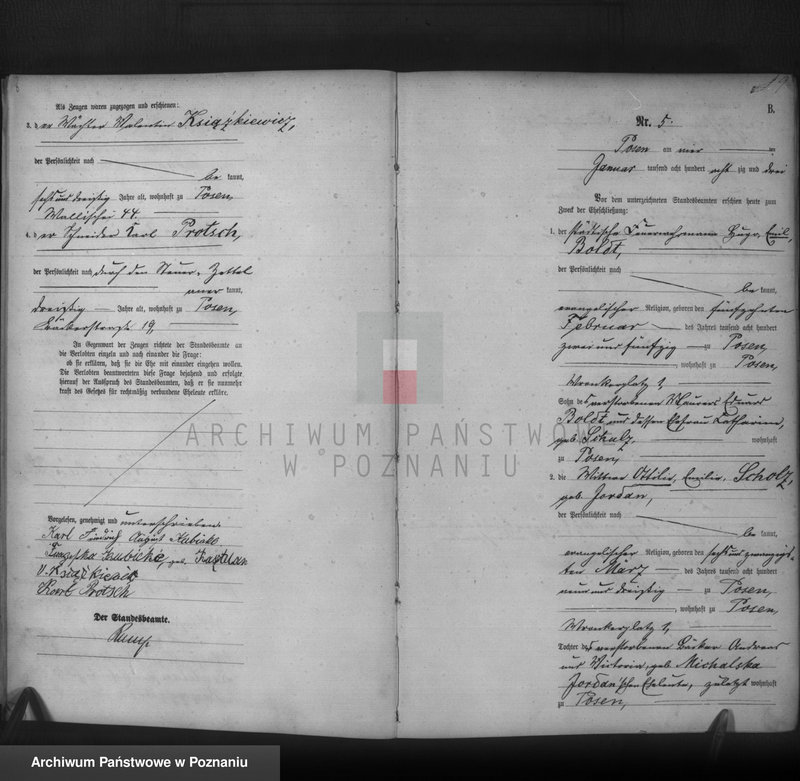 Als Zeugen waren zugezogen und erschienen:
3. der Wächter Valentin Książkiewicz,
der Persönlichkeit nach
bekannt,
sechsunddreißig Jahre alt, wohnhaft zu Posen,
Wallischei 44.
4. der Schneider Karl Protsch,
der Persönlichkeit nach durch den Steuer-Zettel
anerkannt,
dreißig Jahre alt, wohnhaft zu Posen,
19
In Gegenwart der Zeugen richtete der Standesbeamte an
die Verlobten einzeln und nach einander die Frage:
ob sie erklären, daß sie die Ehe mit einander eingehen wollen.
Die Verlobten beantworteten diese Frage bejahend und erfolgte
hierauf der Ausspruch des Standesbeamten, daß er sie nunmehr
kraft des Gesetzes für rechtmäßig verbundene Eheleute erkläre.
Vorgelesen, genehmigt und unterschrieben
Karl Friedrich August Kubicke
Kubicke, geb. Kasztelan
V. Książkiewicz
Karl Protsch
Der Standesbeamte.
B.
Nr. 5.
Posen am vier ten
Januar tausend acht hundert achtzig und drei
Vor dem unterzeichneten Standesbeamten erschien heute zum
Zweck der Eheschließung:
1. der städtische Feuerwehrmann Hugo, Emil,
Boldt,
der Persönlichkeit nach
bekannt,
evangelischer Religion, geboren den fünfzehnten
Februar des Jahres tausend acht hundert
zwei und fünfzig zu Posen,
, wohnhaft zu Posen,
Wronkerplatz 2,
Sohn des verstorbenen Maurers Eduard
Boldt und dessen Ehefrau Katharina,
geb. Schulz, wohnhaft
zu Posen,
2. die Wittwe Ottilie, Emilie, Scholz,
geb. Jordan,
der Persönlichkeit nach
bekannt,
evangelischer Religion, geboren den sechsundzwanzigs-
ten März des Jahres tausend acht hundert
neun und dreißig zu Posen,
, wohnhaft zu Posen,
Wronkerplatz 2,
Tochter des verstorbenen Bäcker Andreas
und Victoria, geb. Michalska
Jordan'schen Eheleute, zuletzt wohnhaft
zu Posen,
ARCHIWUM PAŃSTWOWE
W POZNANIU
Archiwum Państwowe w Poznaniu